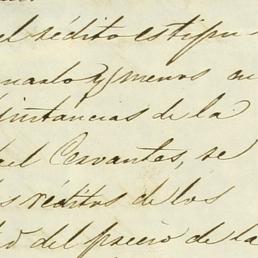 el rédito estipu
y menos en
instancias de la
Cervantes, se
s réditos de los
del precio de la